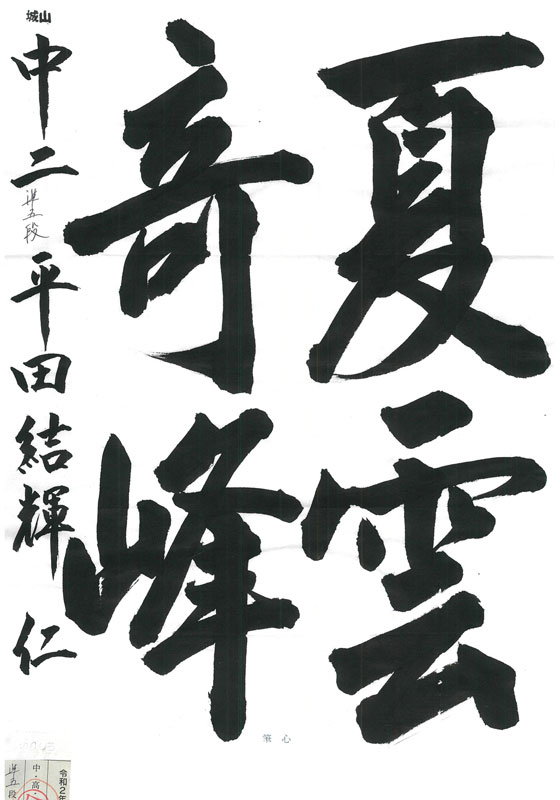 夏雲
奇峰
山城
中二 準五段 平田結輝 仁
心筆
令和2年
中・高・
準五段